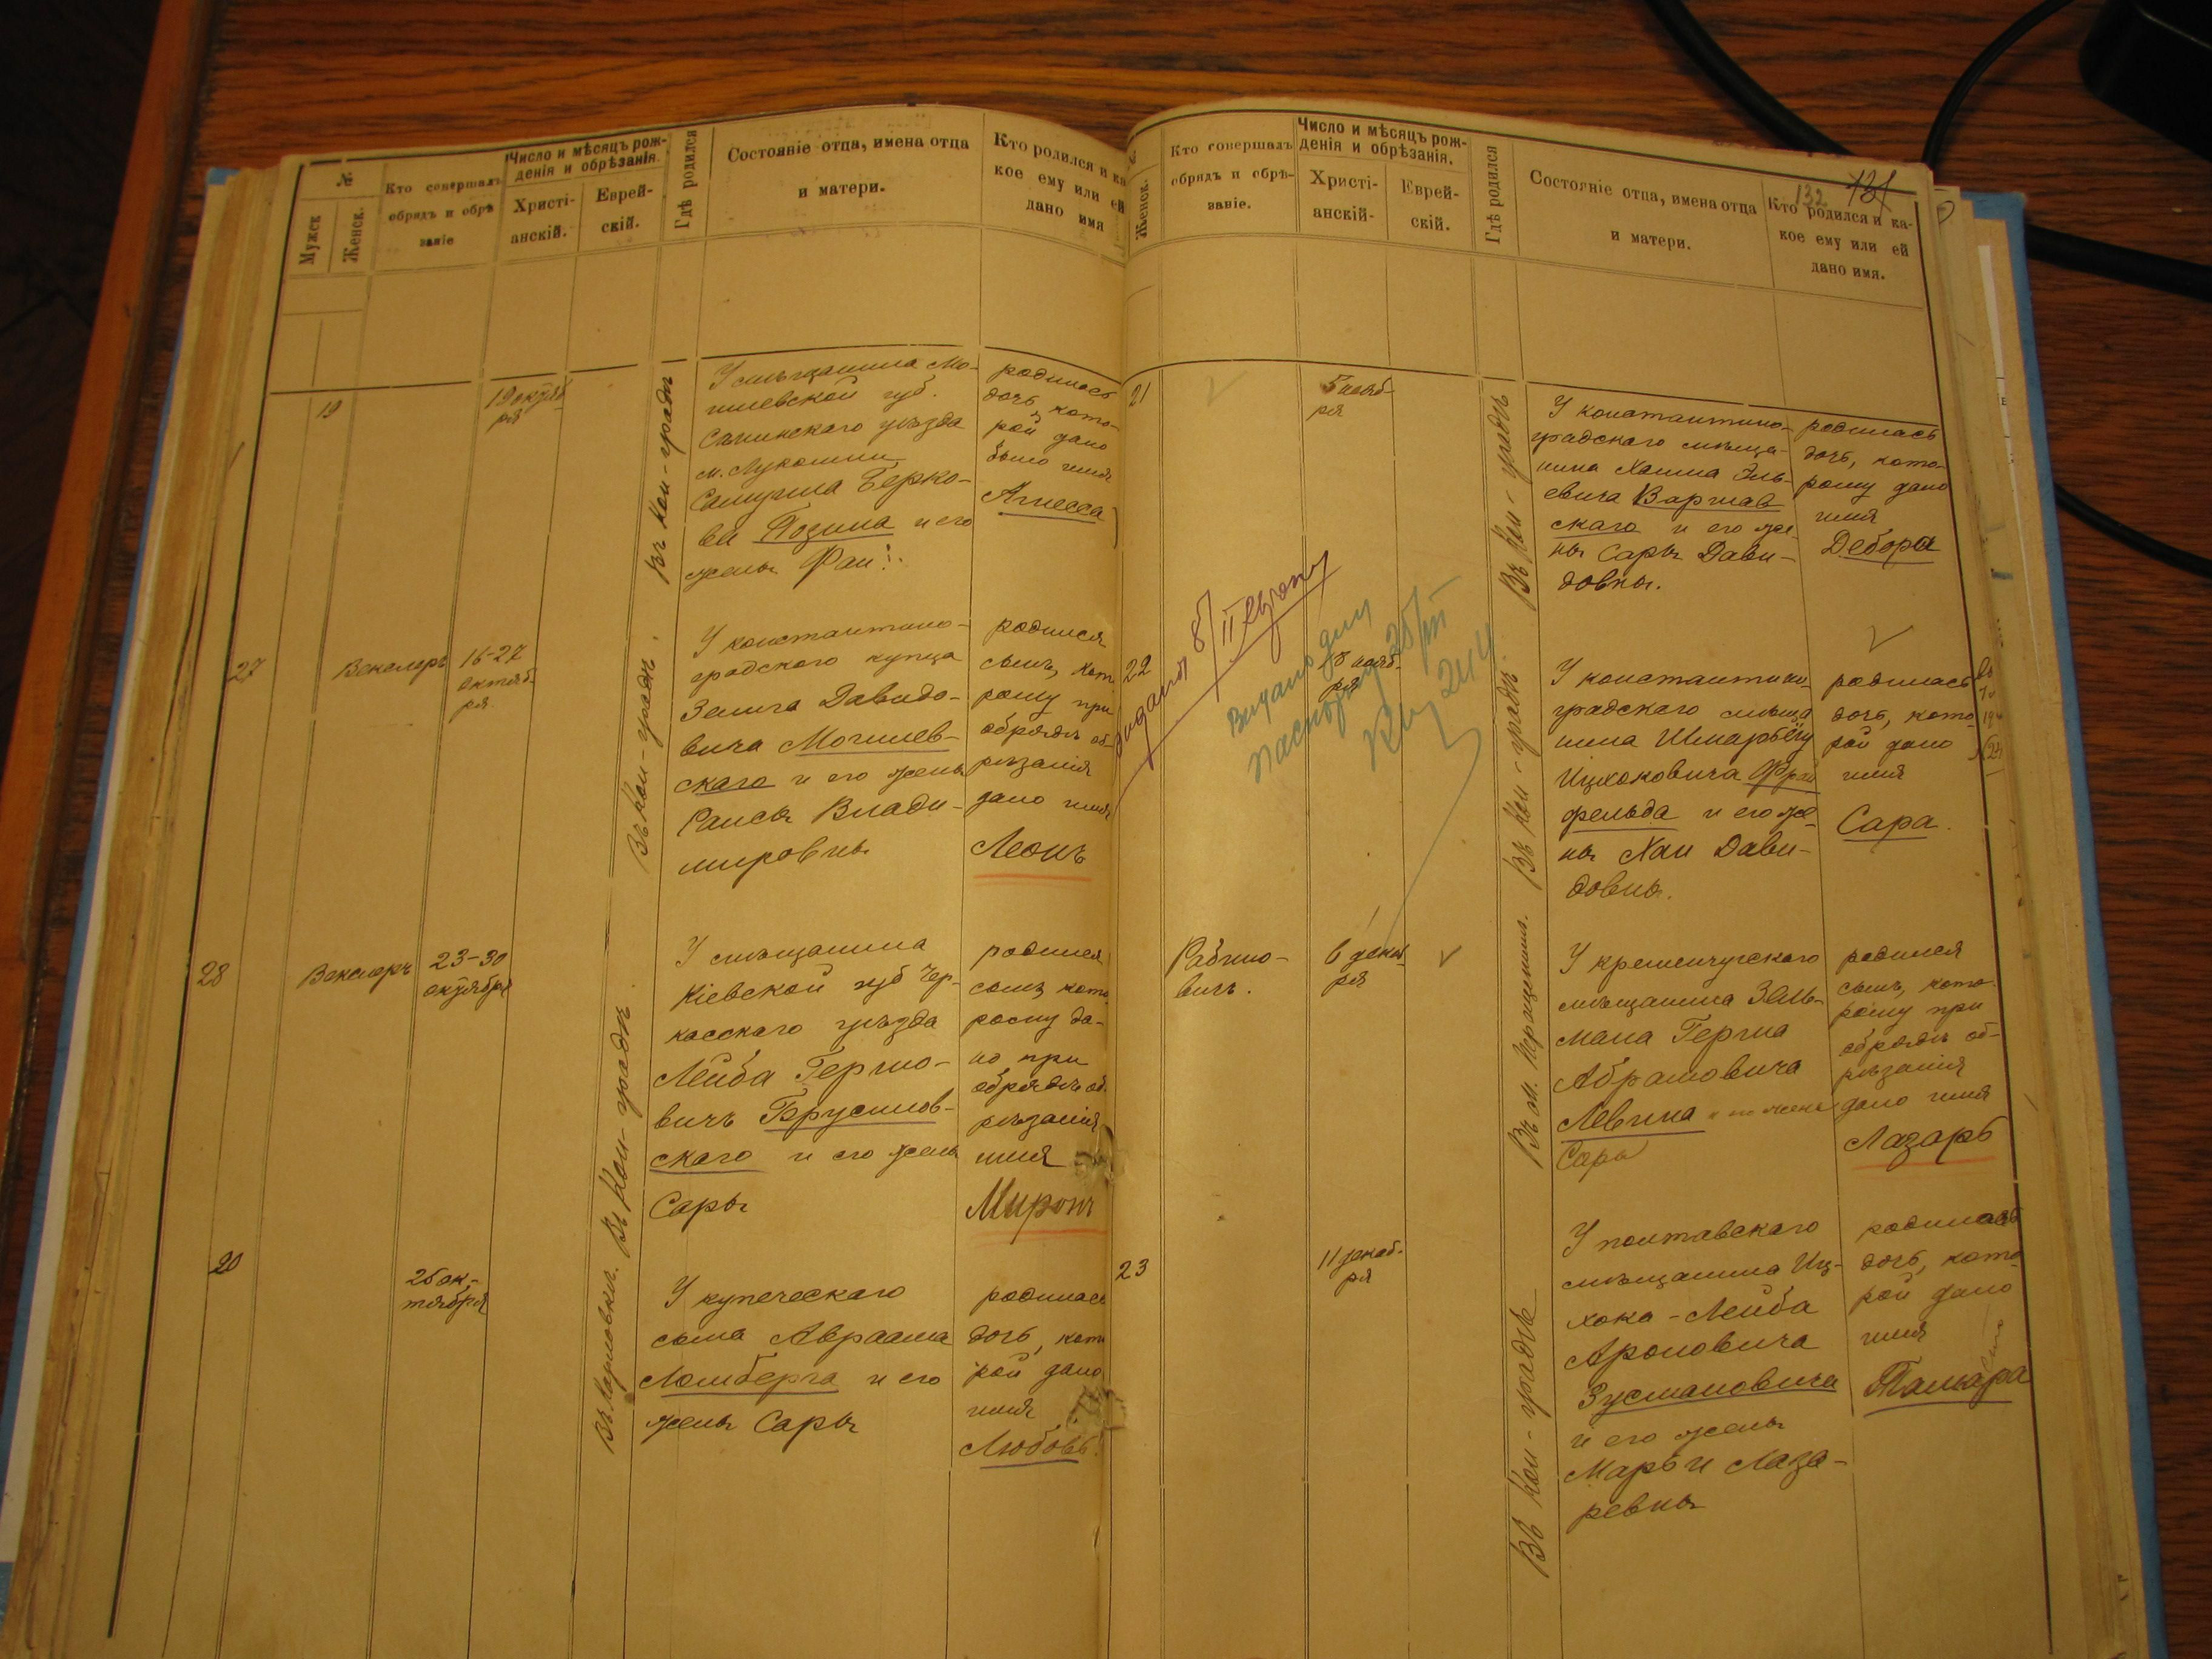 №
Мужск
Женск.
Кто совершалъ
обрядъ и обрѣ
заніе
Число и мѣсяцъ рож-
денія и обрѣзанія.
Христі-
анскій.
Еврей-
скій.
Гдѣ родился
Состояніе отца, имена отца
и матери.
Кто родился и ка
кое ему или ей
дано имя
19
19 октяб
ря
Въ Кон-градѣ
У мѣщанина Мо-
гилевской губ.
Сѣнинскаго уѣзда
м. Лукомли
Самуила Берко-
ва Позина и его
жены Фаи
родилась
дочь, кото-
рой дано
было имя
Агнесса
27
Векслеръ
16-27
октяб
ря.
Въ Кон-градѣ.
У константино-
градского купца
Зелига Давидо-
вича Могилев-
скаго и его жены
Раисы Влади-
мировны
родился
сынъ, кот
рому при
обрядѣ об-
рѣзанія
дано имя
Леонъ
28
Векслеръ
23-30
октября
Въ Кон-градѣ
У мѣщанина
Кіевской губ Чер-
касскаго уѣзда
Лейба Гершо-
вичъ Брусилов-
скаго и его жены
Сары
родился
сынъ, кото
рому да-
но при
обрядѣ об
рѣзанія
имя
Миронъ
20
26 ок-
тября
Въ Карловкѣ.
У купеческаго
сына Авраама
Ломберга и его
жены Сары
родилась
дочь, кото
рой дано
имя
Любовь.
Женск.
Кто совершалъ
обрядъ и обрѣ-
заніе.
Число и мѣсяцъ рож-
денія и обрѣзанія.
Христі-
анскій-
Еврей-
скій.
Гдѣ родился
Состояніе отца, имена отца
и матери.
132
131
Кто родился и ка-
кое ему или ей
дано имя.
21
5 нояб-
ря
Въ Кон-градѣ
У константино-
градскаго мѣща-
нина Хаима Эль-
евича Варшав
скаго и его же-
ны Сары Дави-
довны.
родилась
дочь, кото-
рому дано
имя
Дебора
22
18 нояб-
ря
Выдано для
паспорта 25/III
Въ Кон-градѣ.
У константино-
градскаго мѣща
нина Шмарьегу
Ицхоковича Фрай
фельда и его же-
ны Хаи Дави-
довны.
родилась
дочь, кото-
рой дано
имя
Сара.
Рабино-
вичъ.
6 декаб-
ря
У кременчугскаго
мѣщанина Заль-
мана Герша
Абрамовича
Левина и его жены
Сары
родился
сынъ, кото-
рому при
обрядѣ об-
рѣзанія
дано имя
Лазарь
23
11 декаб-
ря
Въ Кон-градѣ
У полтавскаго
мѣщанина Иц-
хока-Лейба
Ароновича
Зусмановича
и его жены
Марьи Лаза-
ревны
родилась
дочь, кото-
рой дано
имя
Тамара